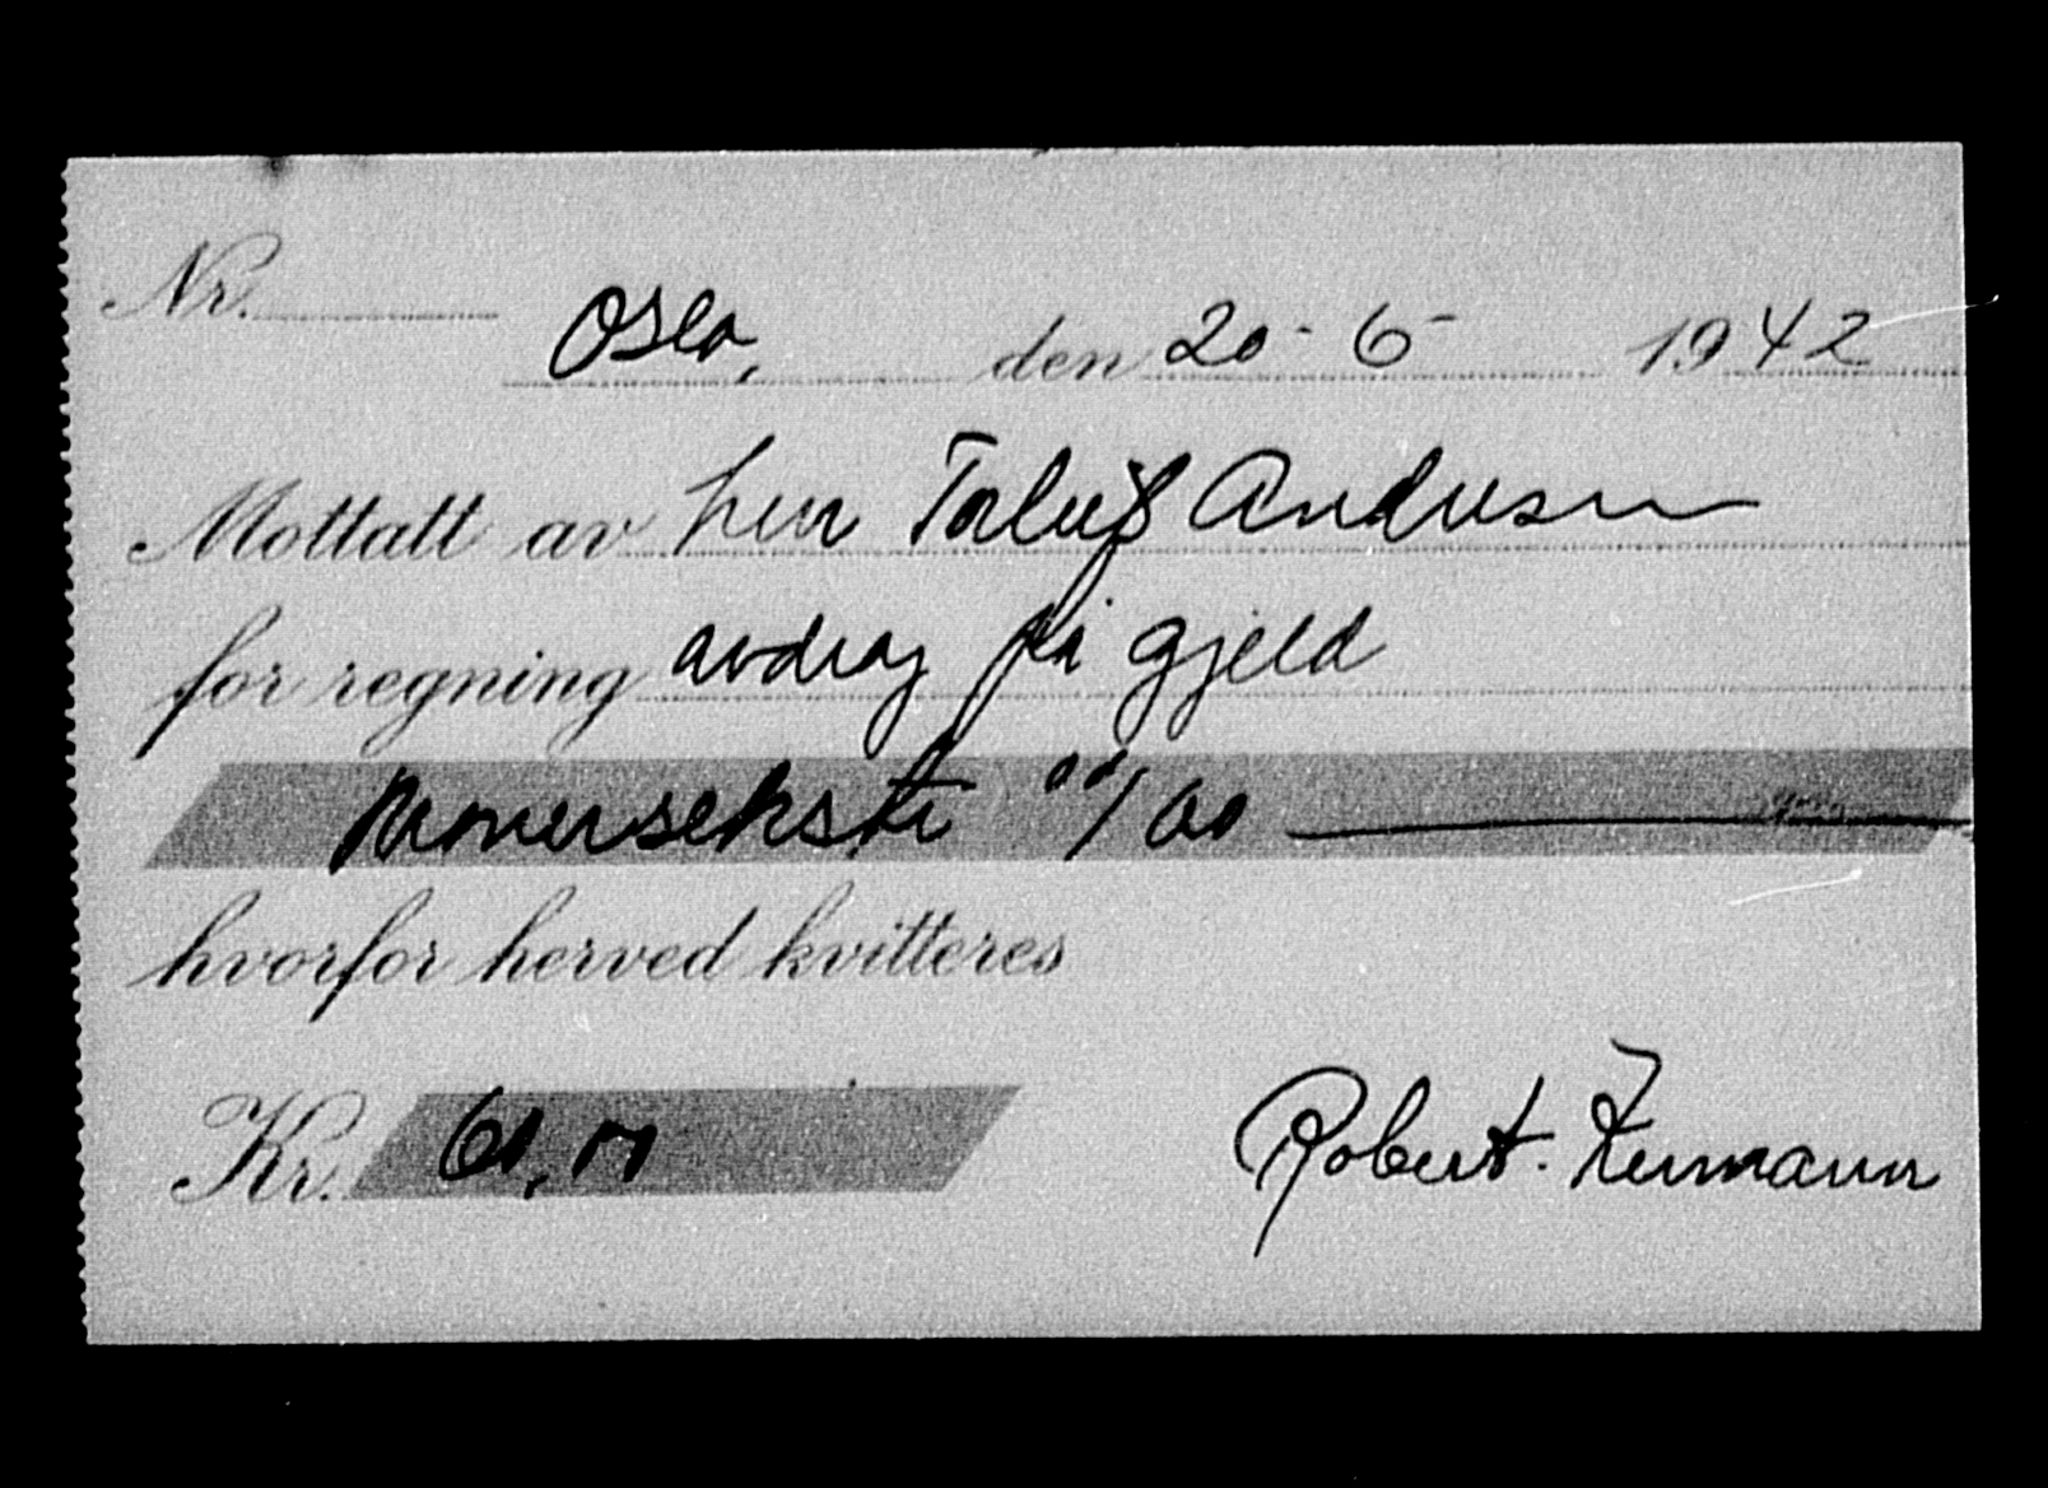 Nr.
Oslo, den 20-6- 1942
Mottatt av herr Toleif Andersen
for regning avdrag på gjeld
Kronerseksti 00/00
hvorfor herved kvitteres
Kr. 60,00
Robert